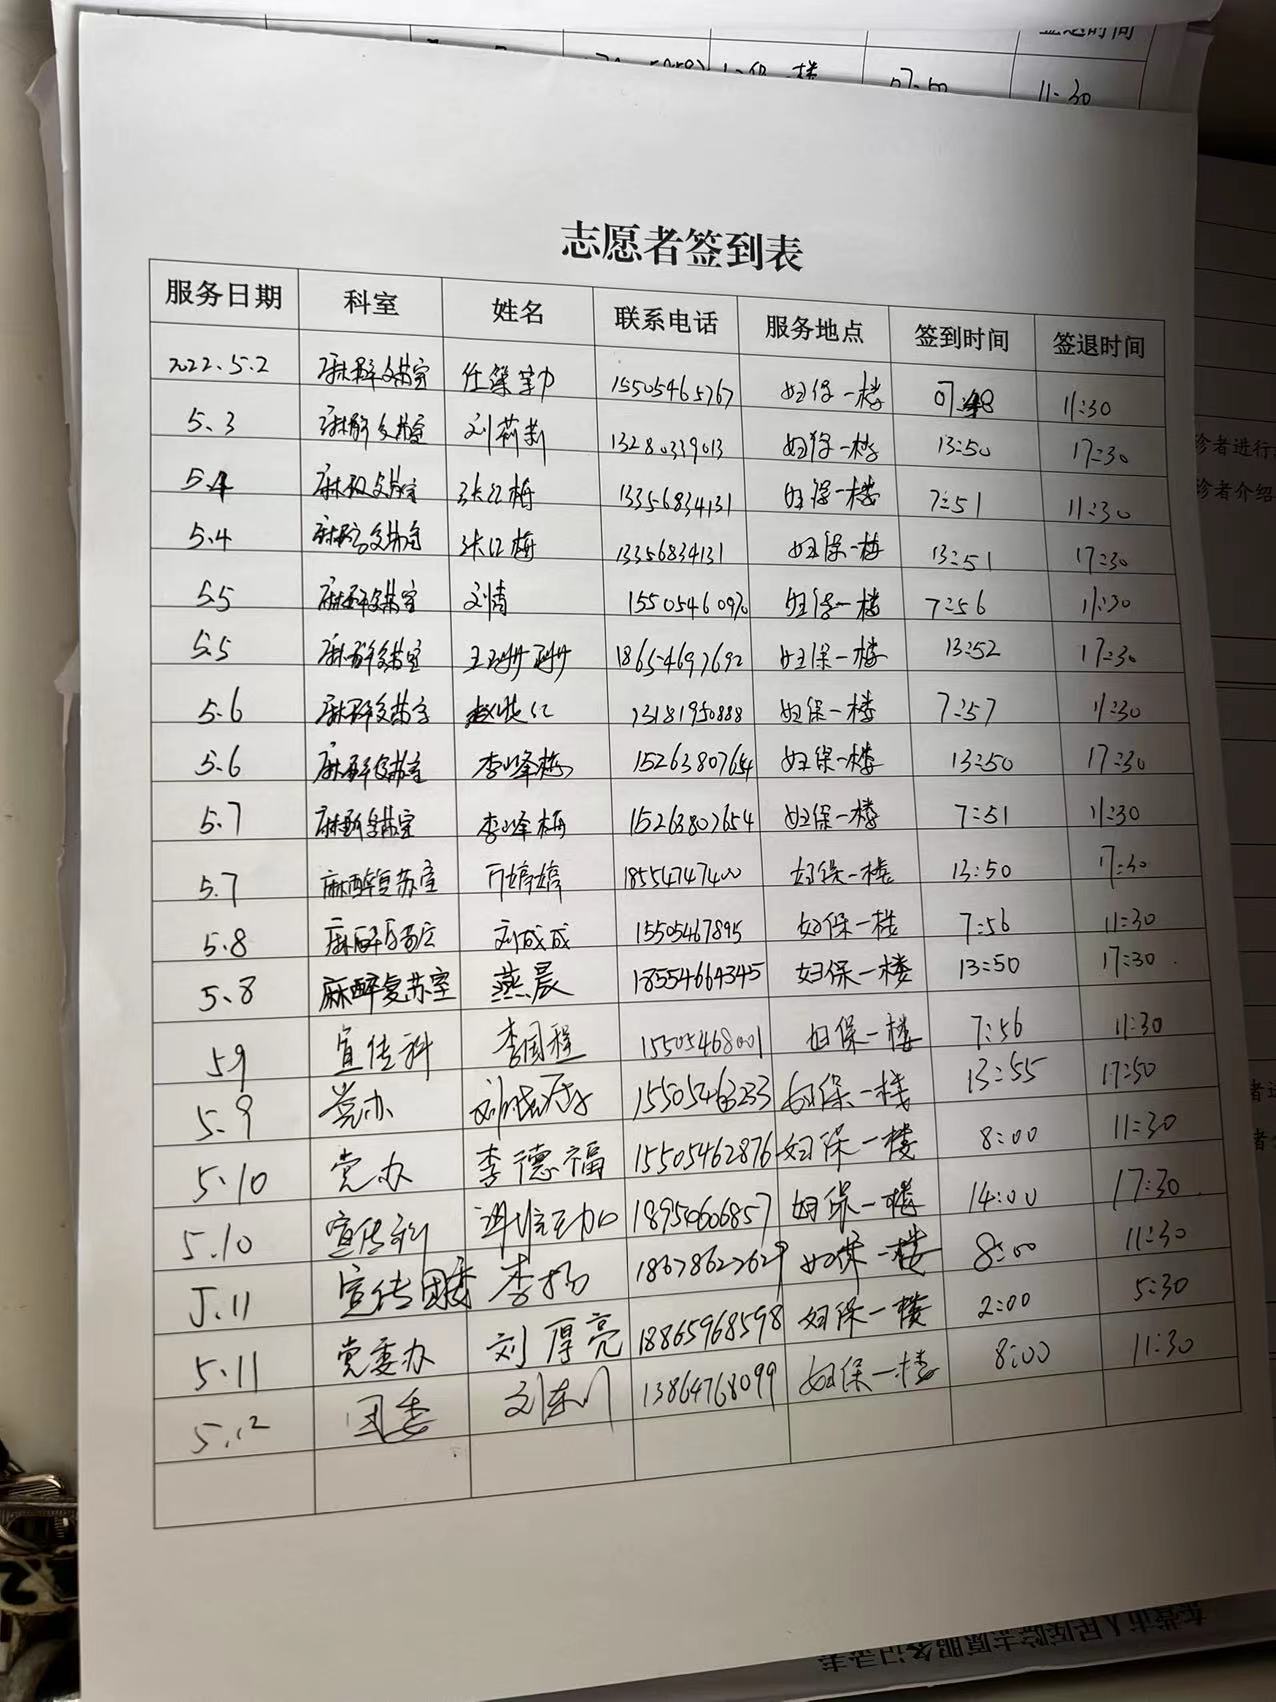 签退时间
11:30
志愿者签到表
服务日期 科室 姓名 联系电话 服务地点 签到时间 签退时间
2022.5.2 麻醉复苏室 15505465767 妇保一楼 07:48 11:30
5.3 麻醉复苏室 刘莉莉 13280339013 妇保一楼 13:50 17:30
5.4 麻醉复苏室 张红梅 13356834131 妇保一楼 7:51 11:30
5.4 麻醉复苏室 张红梅 13356834131 妇保一楼 13:51 17:30
5.5 麻醉复苏室 刘倩 妇保一楼 7:56 11:30
5.5 麻醉复苏室 王珊珊 18654697692 妇保一楼 13:52 17:30
5.6 麻醉复苏室 妇保一楼 7:57 11:30
5.6 麻醉复苏室 李峰梅 15263807654 妇保一楼 13:50 17:30
5.7 麻醉复苏室 李峰梅 15263807654 妇保一楼 7:51 11:30
5.7 麻醉复苏室 万婷婷 18554747400 妇保一楼 13:50 17:30
5.8 麻醉复苏室 刘成成 15505467895 妇保一楼 7:56 11:30
5.8 麻醉复苏室 燕晨 18554664345 妇保一楼 13:50 17:30
5.9 宣传科 李国程 15505468001 妇保一楼 7:56 11:30
5.9 党办 15505463233 妇保一楼 13:55 17:50
5.10 党办 李德福 15505462876 妇保一楼 8:00 11:30
5.10 宣传科 18950606857 妇保一楼 14:00 17:30
5.11 宣传团委 李杨 18678627629 妇保一楼 8:00 11:30
5.11 党委办 刘厚亮 18865968598 妇保一楼 2:00 5:30
5.12 团委 13864768099 妇保一楼 8:00 11:30
诊者进行
诊者介绍
东营市人民医院志愿服务记录表